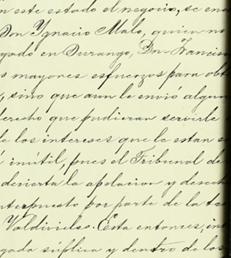 n este estado el negocio, se en
Don Ygnacio Malo, quien no
gado en Durango, Dn. Francisc
s mayores esfuerzos para obt
, sino que aun le envió algun
derecho que pudieran servirle
de los intereses que le estan e
é inútil, pues el Tribunal de
desierta la apelacion y desech
nterpuesto por parte de la te
Valdivielso. Esta entonces, in
gada súplica y dentro de los